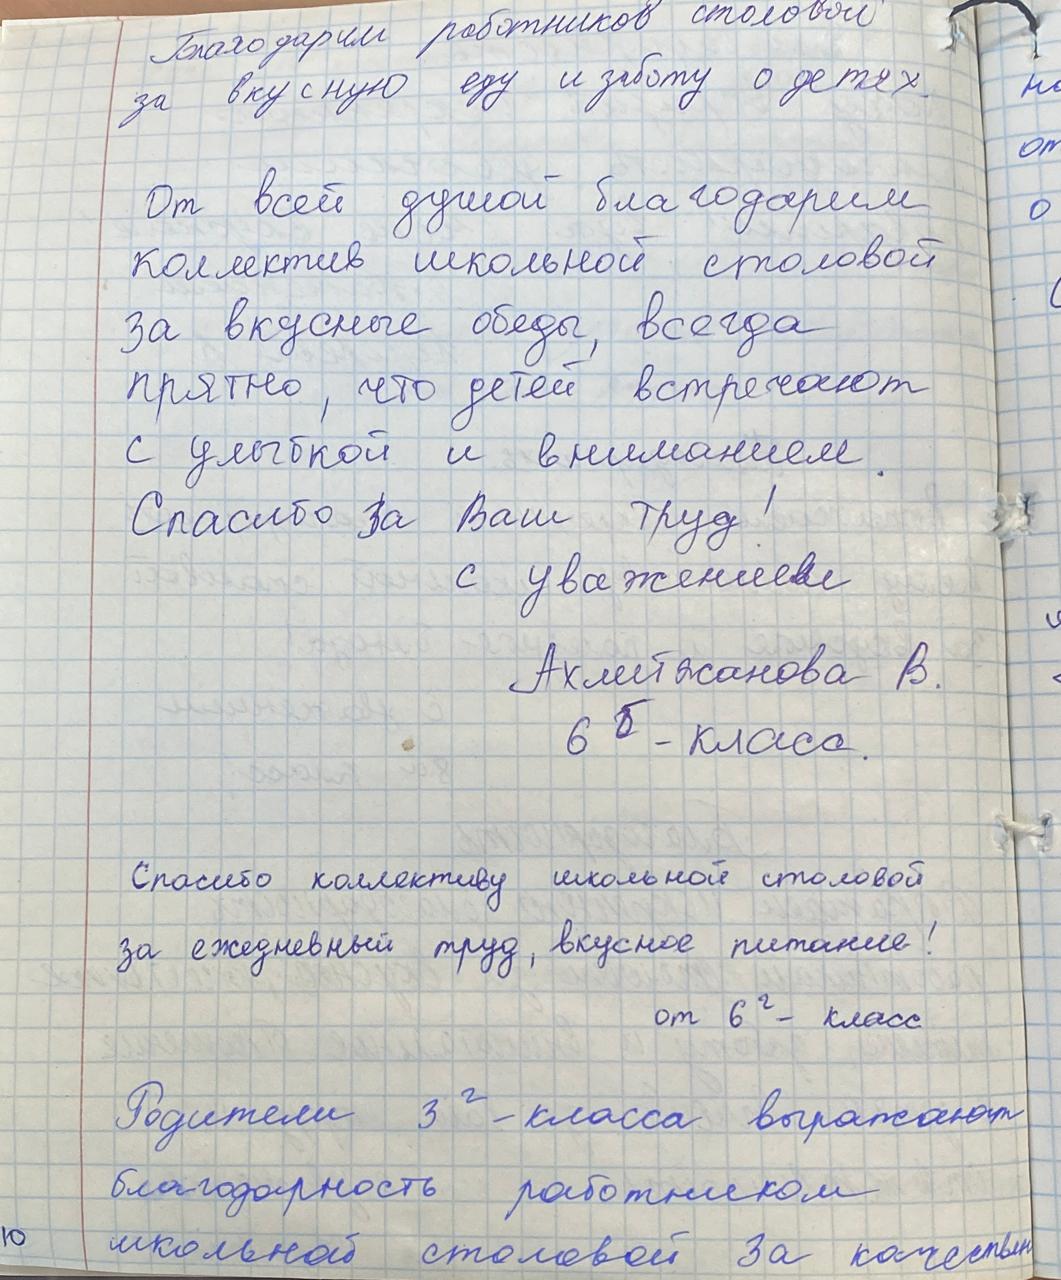 Благодарим работников столовой
за вкусную еду и заботу о детях.
От всей душой благодарим
коллектив школьной столовой
за вкусные обеды, всегда
прятно, что детей встречают
с улыбкой и вниманием.
Спасибо за Ваш труд!
с уважением
Ахметжанова В.
6 Б - класс.
Спасибо коллективу школьной столовой
за ежедневный труд, вкусное питание!
от 6 г - класс
Родители 3 г - класса выражают
благодарность работникам
школьной столовой за качествен
ю
но
от
о